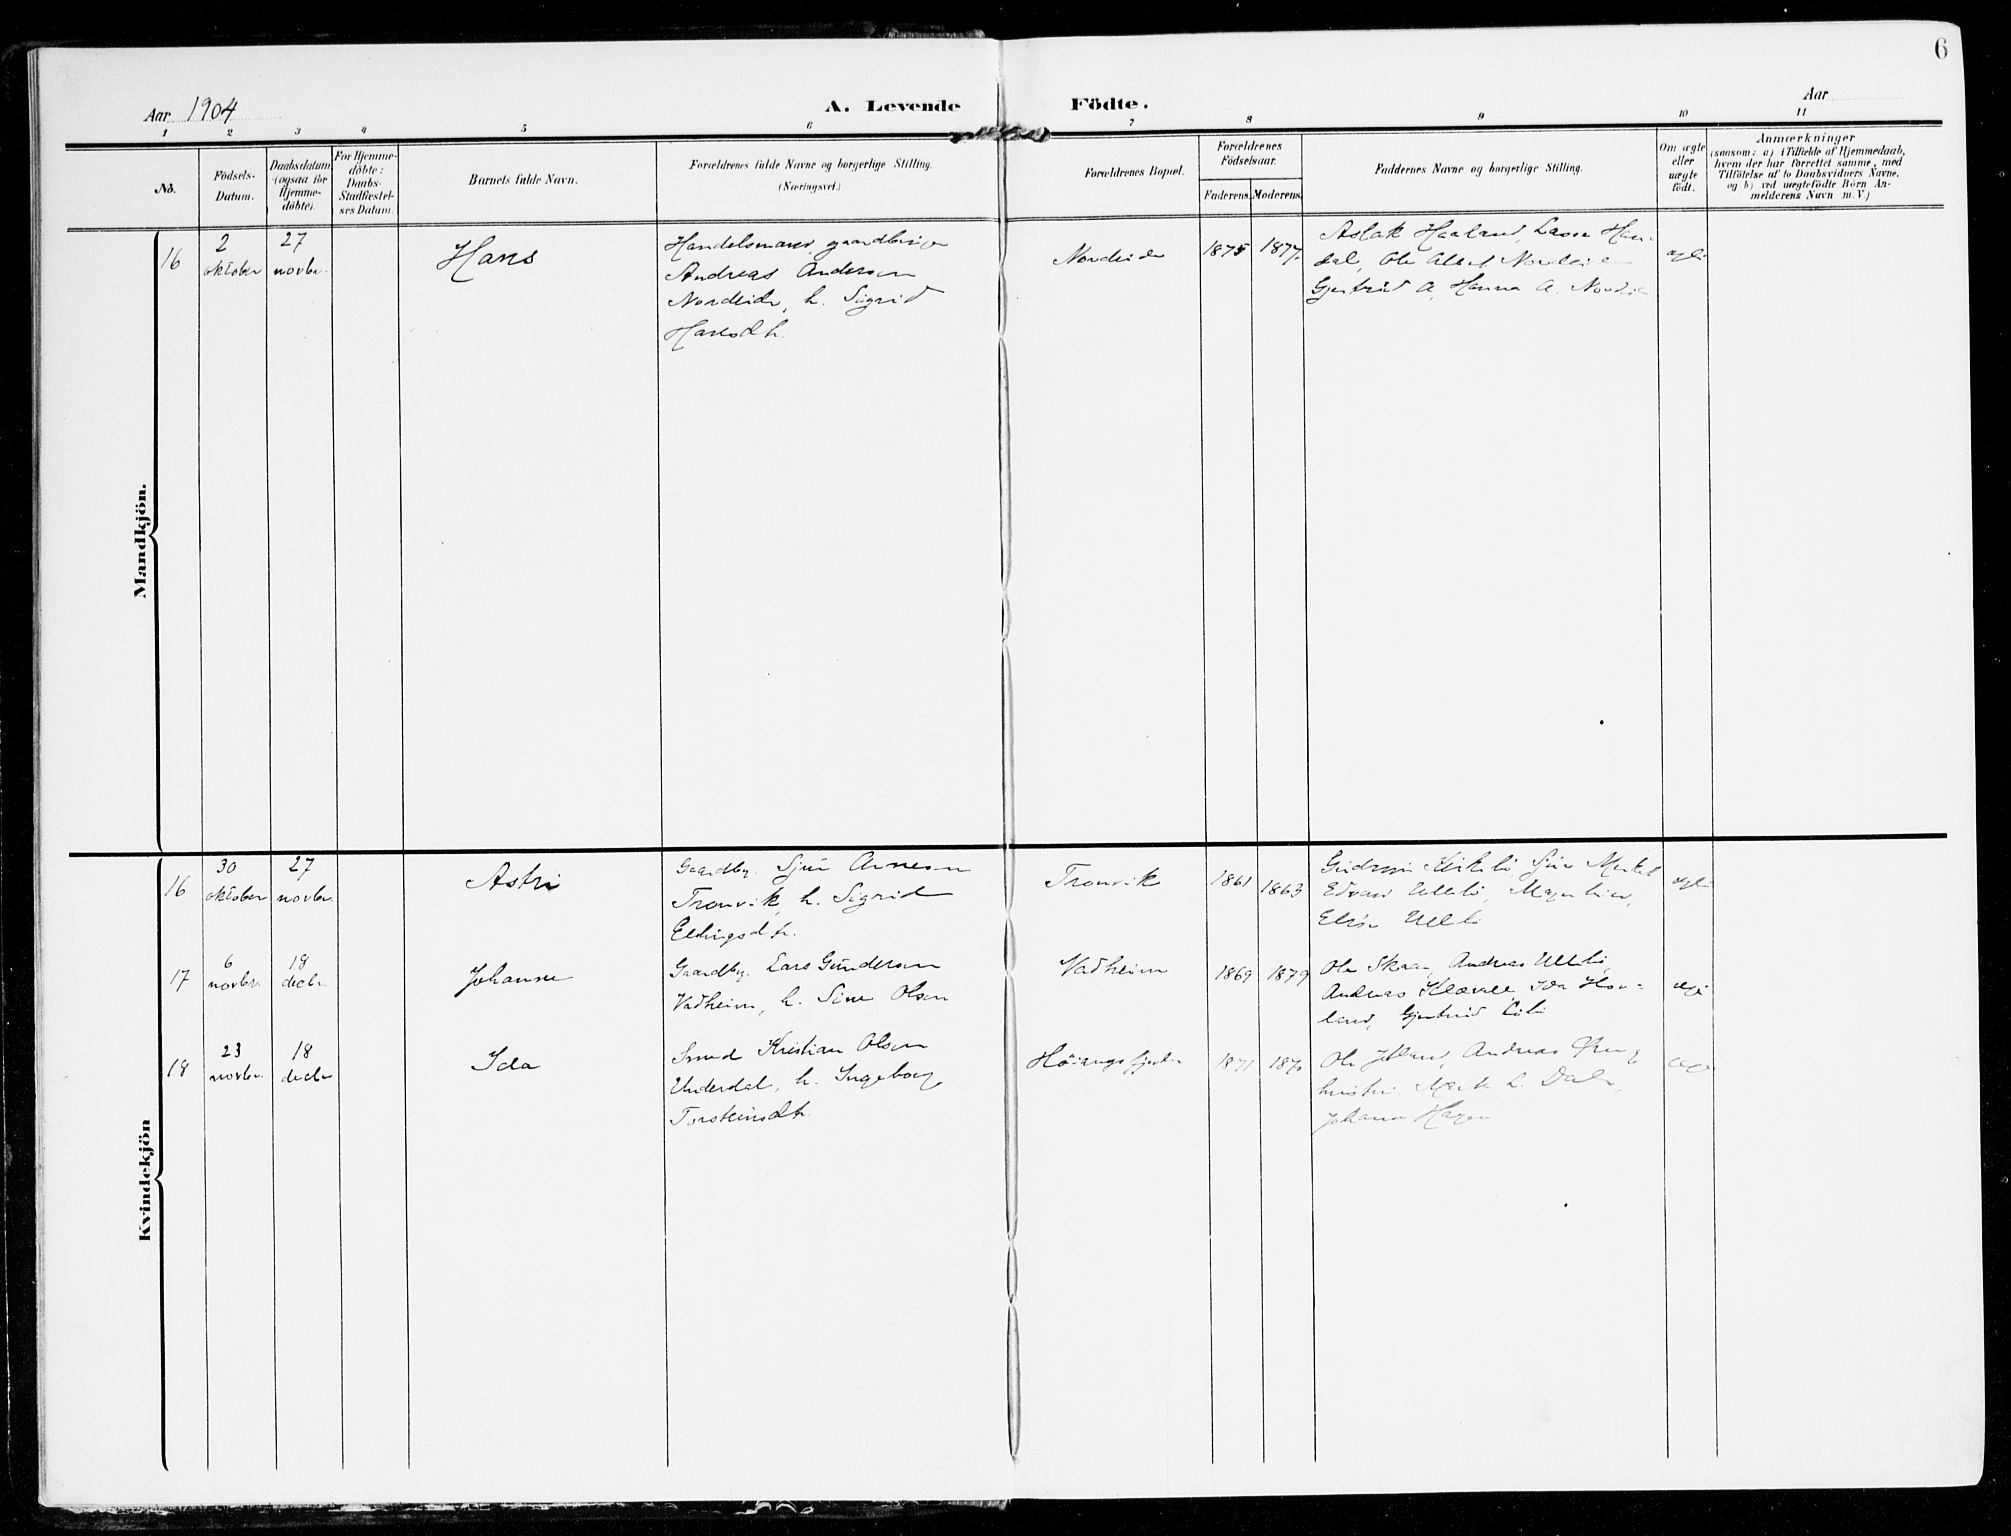 6
Aar 1904
A. Levende Födte.
Aar
1 2 3 4 5 6 7 8 9 10 11
No.
Födsels-
Datum.
Daabsdatum
(ogsaa for
Hjemme-
döbte).
For Hjemme-
döbte:
Daabs-
Stadfæstel-
ses Datum.
Barnets fulde Navn.
Forældrenes fulde Navne og borgerlige Stilling.
(Næringsvei.)
Forældrenes Bopæl.
Forældrenes
Födselsaar.
Faderens. Moderens.
Faddernes Navne og borgerlige Stilling.
Om ægte
eller
uægte
födt.
Anmærkninger
(saasom: a) i Tilfælde af Hjemmedaab,
hvem der har forrettet samme, med
Tilföielse af to Daabsvidners Navne,
og b) ved uægtefödte Börn An-
melderens Navn m. V.)
Mandkjön.
16
2
oktober
27
novbr.
Hans
Handelsmand, gaardbruger
Andreas Andersen
Nordeide, h. Sigrid
Hansdtr.
Nordeide
1875 1877.
Aslak Haaland, Lasse
Ole Albert Nordeide
Gjertrud A, Hanna A. Nordeide
ægte
Kvindekjön
16
30
oktober
27
novbr.
Astri
Gaardbr. Sjur Arnesen
Tronvik, h. Sigrid
Ellingsdtr.
Tronvik
1861 1863
Edvard
ægte
17
6
novbr.
18
decbr.
Johanne
Gaardbr. Lars Gundersen
Vadheim, h. Sine Olsen
Vadheim
1869 1879
Ole Skaar, Andreas
Andreas Ida Hov-
land, Gjertrud
ægte
18
23
novbr.
18
decbr
Ida
Smed Kristian Olsen
Underdal, h. Ingeborg
Torsteinsdtr.
Höiangsfjorden
1871 187
Ole Andreas
Dale,
Johanna